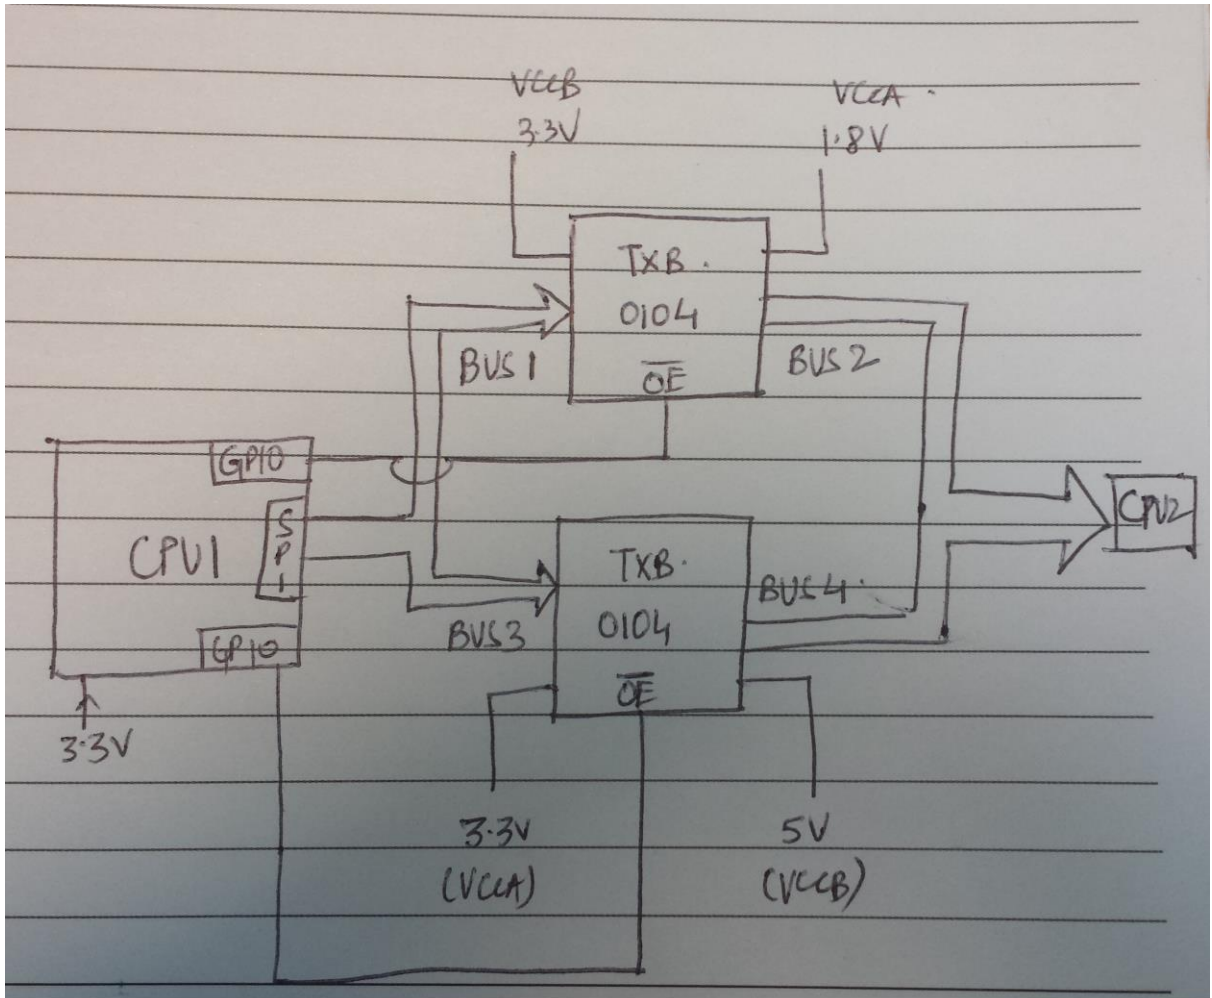 VCCB
3.3V
VCCA
1.8V
TXB.
0104
OE
BUS1
BUS2
GPIO
SPI
CPU1
GPIO
3.3V
CPU2
TXB.
0104
OE
BUS3
BUS4
3.3V
(VCCA)
5V
(VCCB)